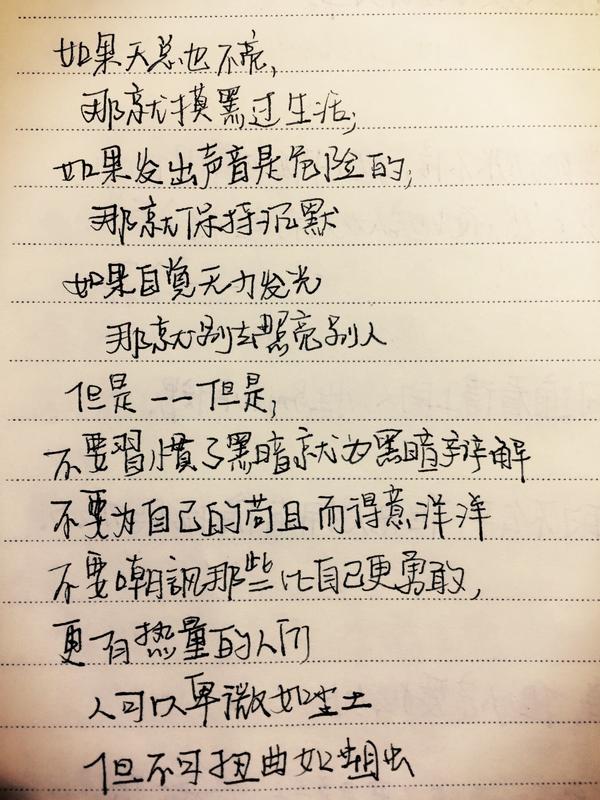 如果天总也不亮,
那就摸黑过生活;
如果发出声音是危险的;
那就保持沉默
如果自觉无力发光
那就别去照亮别人
但是——但是;
不要習慣了黑暗就为黑暗辩解
不要为自己的苟且而得意洋洋
不要嘲諷那些比自己更勇敢,
更有热量的人们
人可以卑微如尘土
但不可扭曲如蛆虫